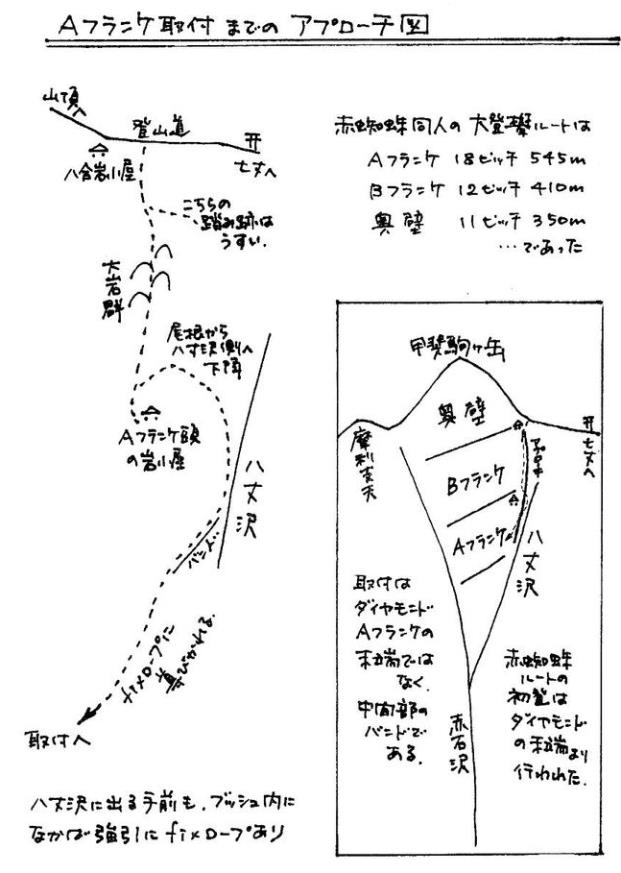 Aフランケ取付までのアプローチ図
山頂へ
登山道
八合岩小屋
七丈へ
こちらの
踏み跡は
うすい.
大岩群
尾根から
八丈沢側へ
下降
Aフランケ頭
の岩小屋
八丈沢
バンド
fixロープに
導びかれる.
取付へ
八丈沢に出る手前も、ブッシュ内に
なかば強引にfixロープあり
赤蜘蛛同人の大登攀ルートは
Aフランケ 18ピッチ 545m
Bフランケ 12ピッチ 410m
奥壁 11ピッチ 350m
…であった
甲斐駒ヶ岳
奥壁
摩利支天
Bフランケ
Aフランケ
七丈へ
八丈沢
取付は
ダイヤモンド
Aフランケの
末端では
なく、
中間部の
バンドで
ある.
赤石沢
赤蜘蛛
ルートの
初登は
ダイヤモンド
の末端より
行われた.